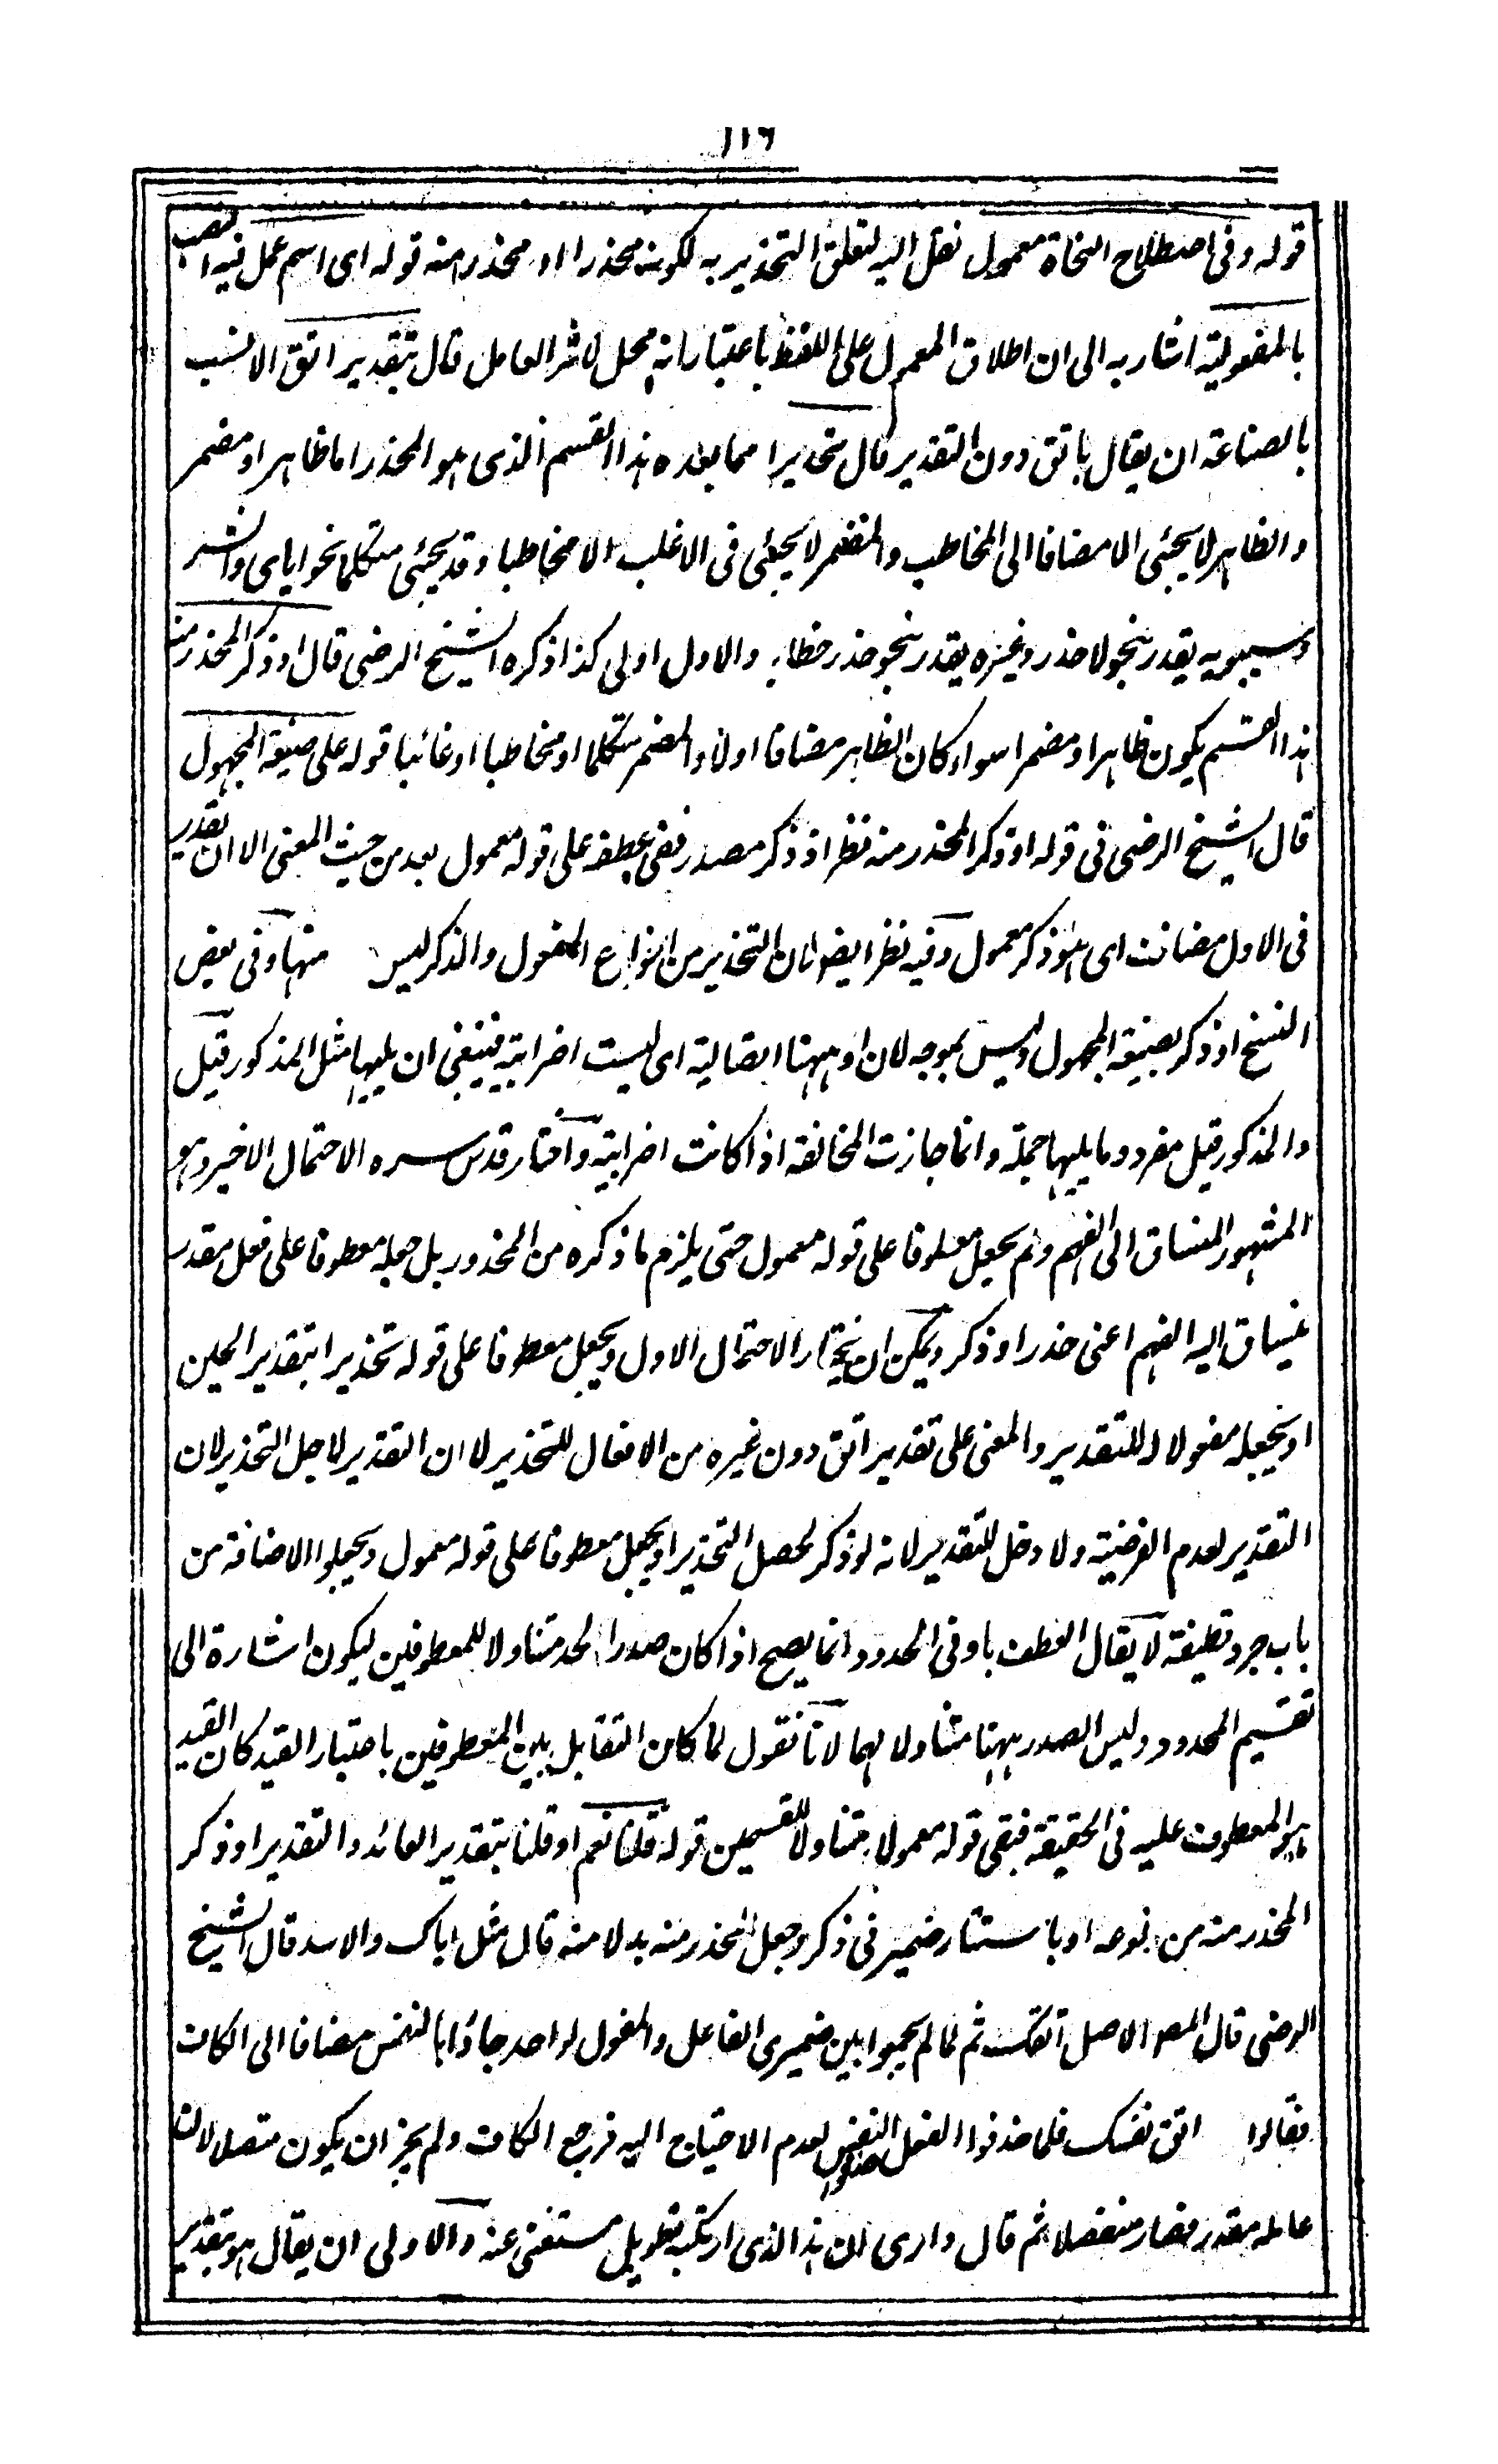 ١١٦
قوله وفى اصطلاح النحاة معمول نقل اليه لتعلق التحذير به لكونه محذرا او محذرا منه قوله اى اسم عمل فيه النصب
بالمفعولية اشار به الى ان اطلاق المعمول على اللفظ باعتبار انه محل لاثر العامل قال بتقدير اتق الانسب
بالصناعة ان يقال باتق دون التقدير قال تحذيرا مما بعده هذا القسم الذى هو المحذر اما ظاهر او مضمر
والظاهر لا يجئ الا مضافا الى المخاطب والمضمر لا يجئ فى الاغلب الا مخاطبا وقد يجئ متكلما نحو اياى والشر
وسيبويه يقدر بنحو لاحذر وغيره يقدر بنحو حذر خطابا والاول اولى كذا ذكره الشيخ الرضى قال او ذكر المحذر منه
هذا القسم يكون ظاهرا ومضمرا سواء كان الظاهر مضافا اولا والمضمر متكلما او مخاطبا او غائبا قوله على صيغة المجهول
قال الشيخ الرضى فى قوله او ذكر المحذر منه نظر اذ ذكر مصدر ففى عطفه على قوله معمول بعد من حيث المعنى الا ان يقدر
فى الاول مضاف اى هو ذكر معمول وفيه نظر ايضا لان التحذير من انواع المفعول والذكر ليس منها وفى بعض
النسخ او ذكر بصيغة المجهول وليس بموجه لان او ههنا اتصالية اى ليست اضرابية فينبغى ان يليها مثل المذكور قبل
والمذكور قبل مفرد وما يليها جملة وانما جازت المخالفة اذا كانت اضرابية واختار قدس سره الاحتمال الاخير وهو
المشهور المنساق الى الفهم ولم يجعل معطوفا على قوله معمول حتى يلزم ما ذكره من المحذور بل جعله معطوفا على فعل مقدر
ينساق اليه الفهم اعنى حذر او ذكر ويمكن ان يختار الاحتمال الاول ويجعل معطوفا على قوله تحذيرا بتقدير الحين
او يجعله مفعولا له للتقدير والمعنى على تقدير اتق دون غيره من الافعال للتحذير لا ان التقدير لاجل التحذير لان
التقدير لعدم الفرضية ولا دخل للتقدير لانه لو ذكر لحصل التحذير او يجعل معطوفا على قوله معمول ويجعلوا الاضافة من
باب جرد قطيفة لا يقال العطف باو فى الحدود انما يصح اذا كان صدر الحد متناولا للمعطوفين ليكون اشارة الى
تقسيم المحدود وليس الصدر ههنا متناولا لهما لانا نقول لما كان التقابل بين المعطوفين باعتبار القيد كان القيد
هو المعطوف عليه فى الحقيقة فبقى قوله معمولا متناولا للقسمين قوله قلنا نعم او قلنا بتقدير العائد والتقدير او ذكر
المحذر منه من نوعه او باستتار ضمير فى ذكر وجعل المحذر منه بدلا منه قال مثل اياك والاسد قال الشيخ
الرضى قال المص الاصل اتقك ثم لما لم يجمعوا بين ضميرى الفاعل والمفعول لواحد جاؤا بالنفس مضافا الى الكاف
فقالوا اتق نفسك فلما حذفوا الفعل حذفوا النفس لعدم الاحتياج اليه فرجع الكاف ولم يجز ان يكون متصلا لان
عامله مقدر فصار منفصلا ثم قال وارى ان هذا الذى ارتكبه تطويل مستغنى عنه والاولى ان يقال هو بتقدير